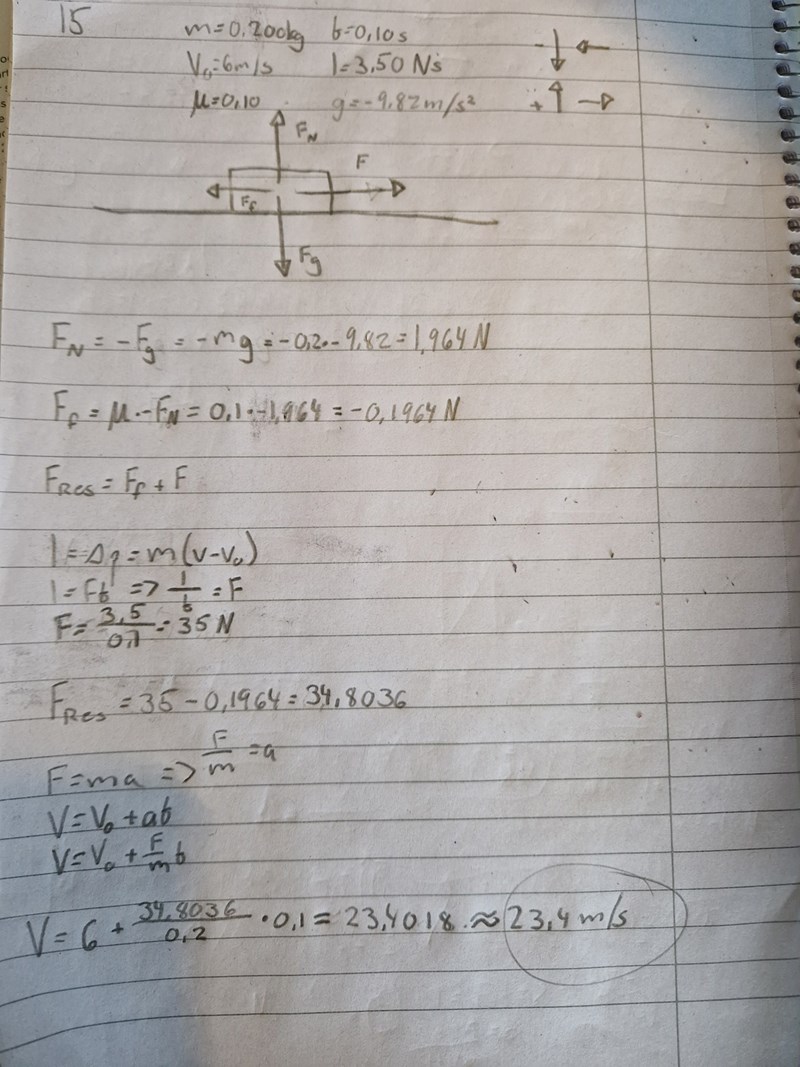 15 m=0,200kg t=0,10s
V₀=6m/s I=3,50 Ns - ↓ ←
μ=0,10 g=-9,82m/s² + ↑ →
F_N
F
F_f
F_g
F_N = -F_g = -mg = -0,2·-9,82 = 1,964 N
F_f = μ·-F_N = 0,1·-1,964 = -0,1964 N
F_Res = F_f + F
I = Δp = m(v-v₀)
I = Ft => I/t = F
F = 3,5/0,1 = 35 N
F_Res = 35 - 0,1964 = 34,8036
F=ma => F/m = a
V=V₀ + at
V=V₀ + F/m t
V = 6 + 34,8036/0,2 · 0,1 = 23,4018 ≈ 23,4 m/s